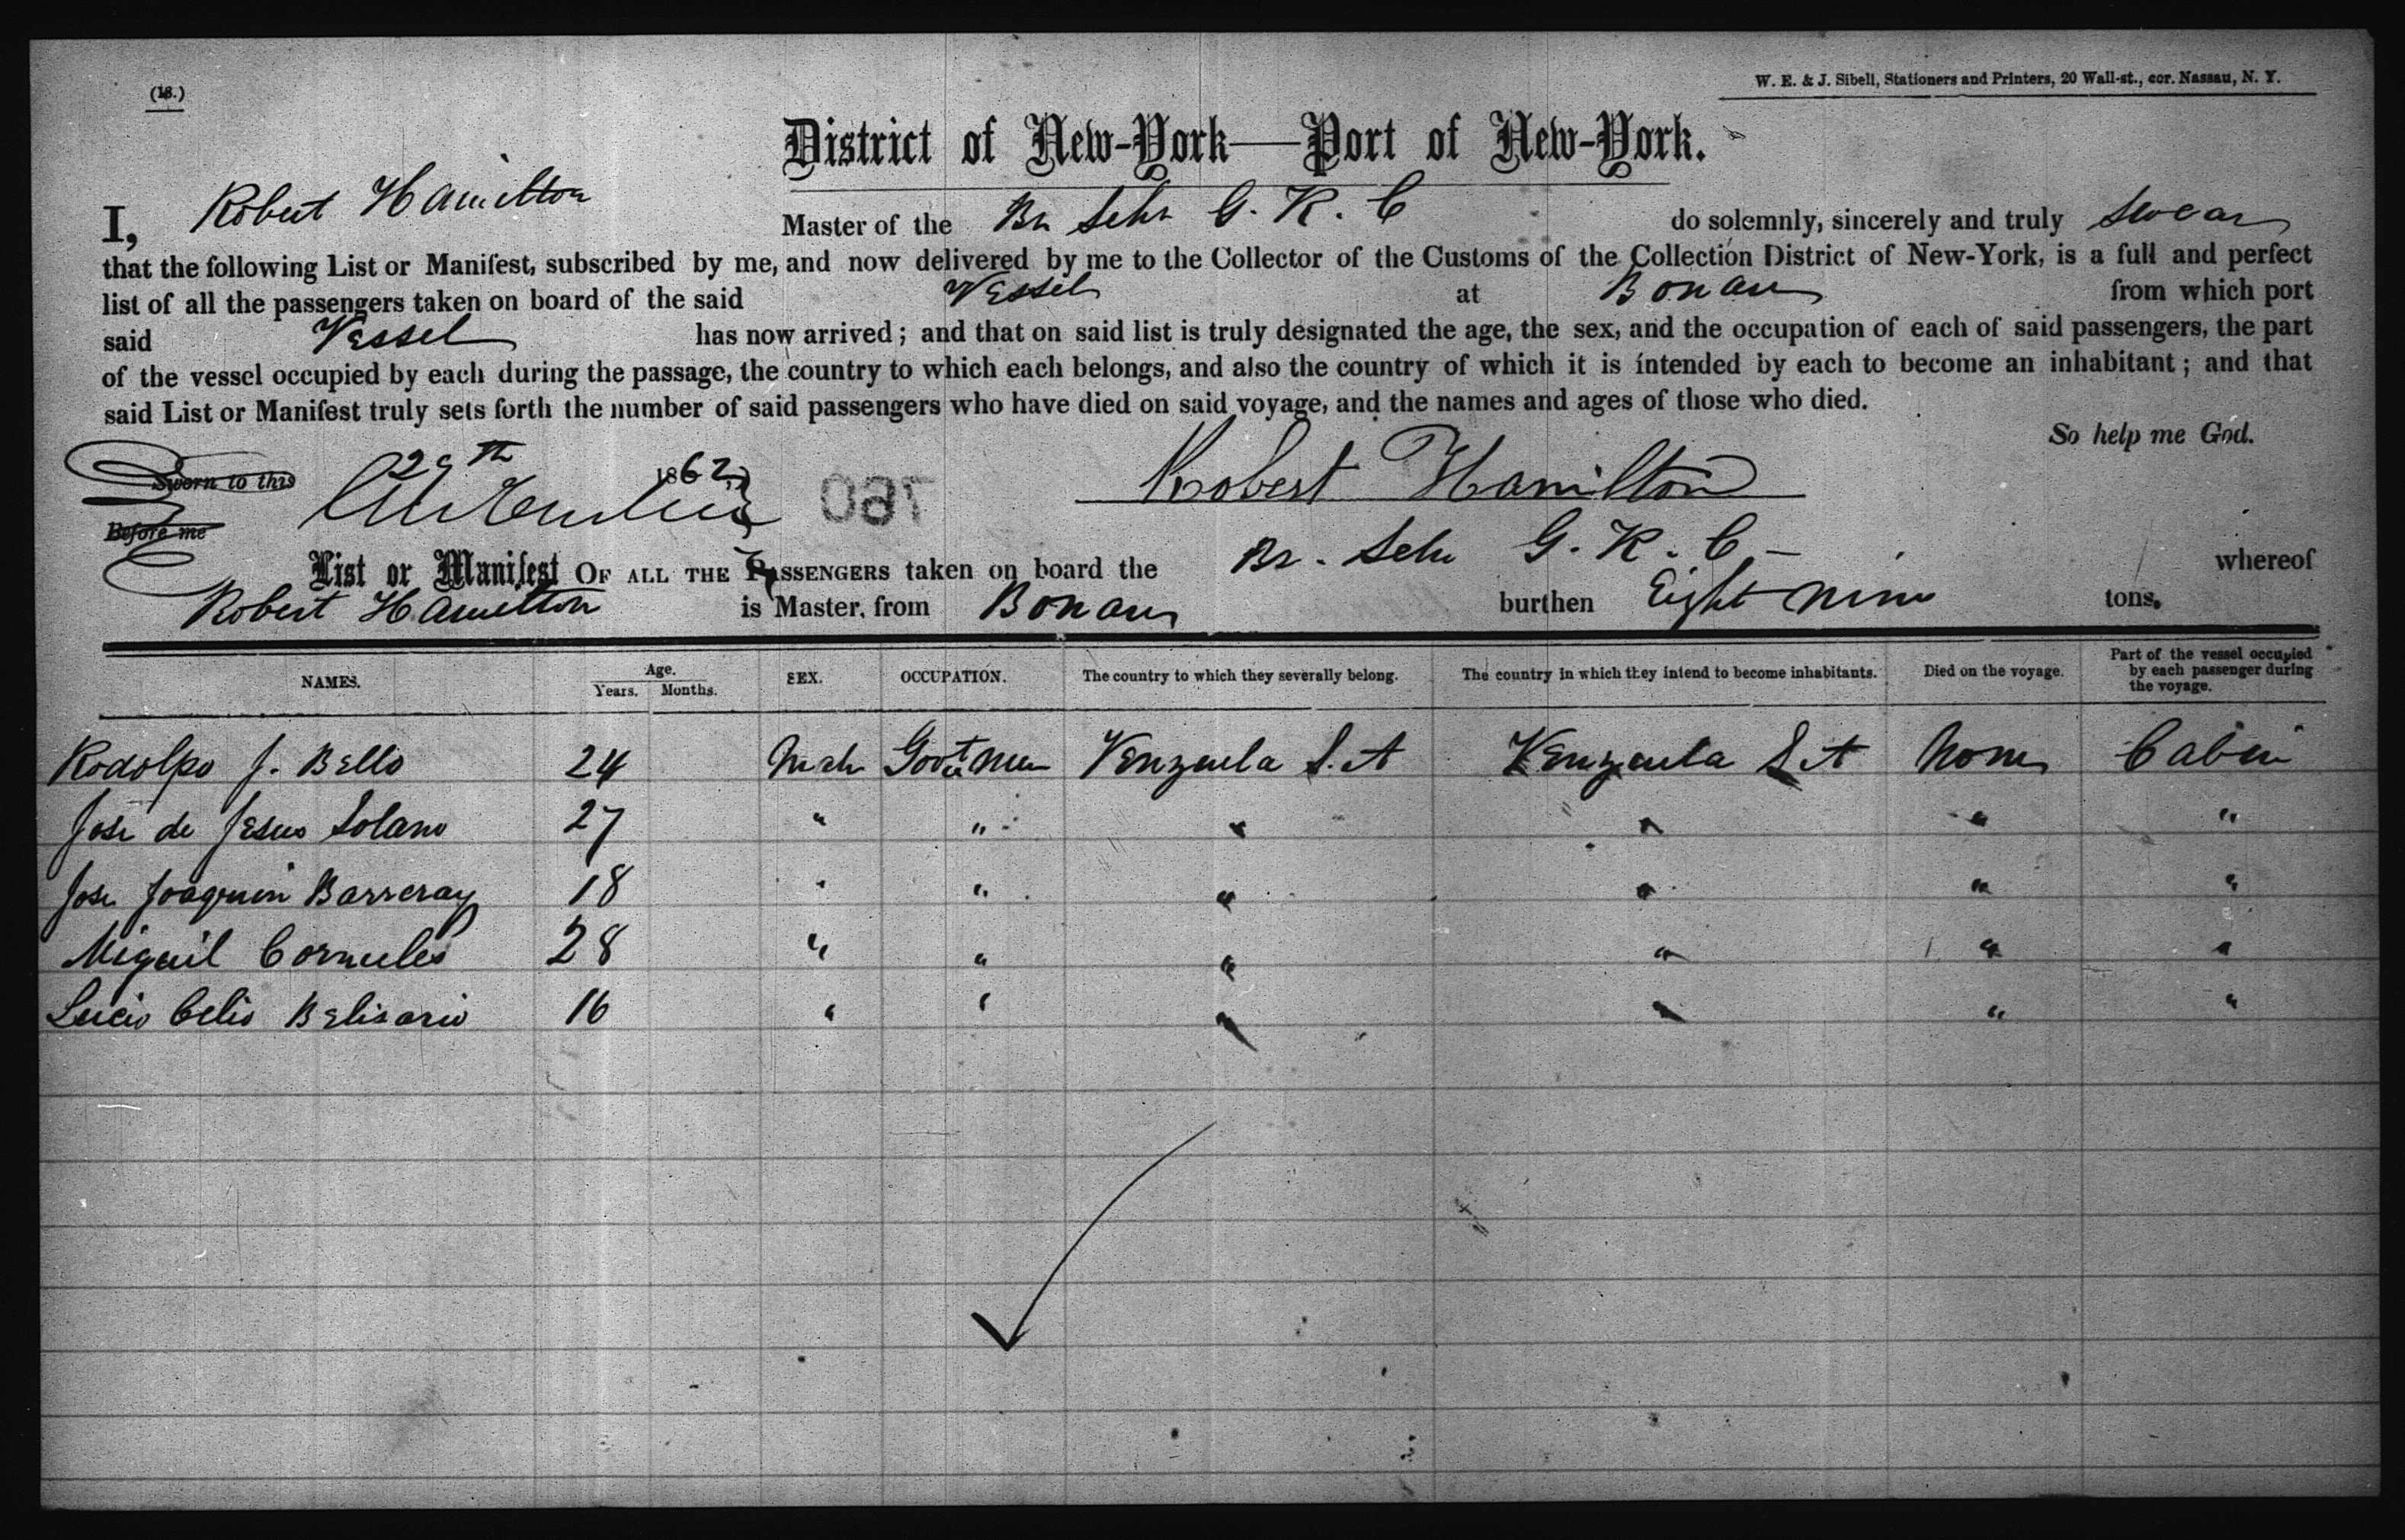 (18.)
W. E. & J. Sibell, Stationers and Printers, 20 Wall-st., cor. Nassau, N. Y.
District of New-York—Port of New-York.
I, Robert Hamilton Master of the Br Schr G. R. C do solemnly, sincerely and truly Swear
that the following List or Manifest, subscribed by me, and now delivered by me to the Collector of the Customs of the Collection District of New-York, is a full and perfect
list of all the passengers taken on board of the said Vessel at Bonair from which port
said Vessel has now arrived; and that on said list is truly designated the age, the sex, and the occupation of each of said passengers, the part
of the vessel occupied by each during the passage, the country to which each belongs, and also the country of which it is intended by each to become an inhabitant; and that
said List or Manifest truly sets forth the number of said passengers who have died on said voyage, and the names and ages of those who died.
So help me God.
Sworn to this 29th 1862
Robert Hamilton
Before me
760
List or Manifest OF ALL THE PASSENGERS taken on board the Br. Schr G. R. C - whereof
Robert Hamilton is Master, from Bonair burthen Eight nine tons.
NAMES. Age. Years. Months. SEX. OCCUPATION. The country to which they severally belong. The country in which they intend to become inhabitants. Died on the voyage. Part of the vessel occupied by each passenger during the voyage.
Rodolpo J. Bello 24 Male Govt Men Venzuela S. A Venzuela S. A None Cabin
Jose de Jesus Solano 27 " " " " " "
Jose Joaquin Barreray 18 " " " " " "
Miguil Cornules 28 " " " " " "
Lucio Celio Belisario 16 " " " " " "